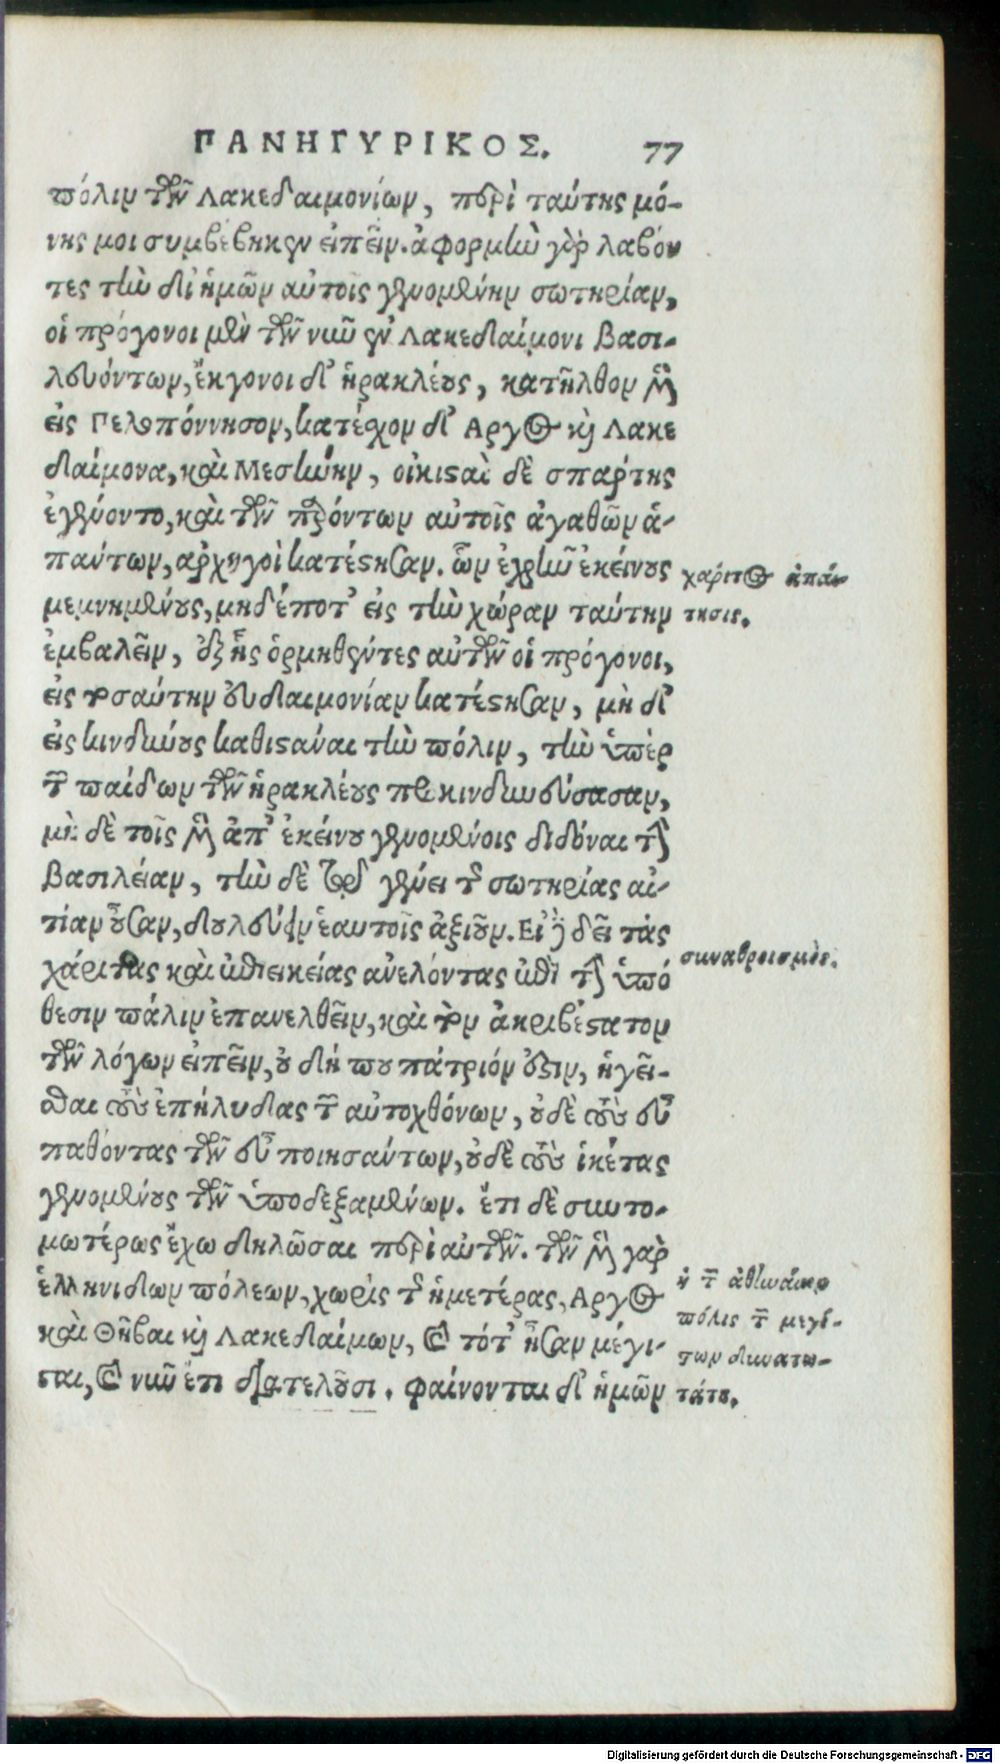 ΠΑΝΗΓΥΡΙΚΟΣ. 77
πόλιν τῶν Λακεδαιμονίων, περὶ ταύτης μό-
νης μοι συμβέβηκεν εἰπεῖν. ἀφορμὴν γὰρ λαβόν
τες τὴν δι' ἡμῶν αὐτοῖς γενομένην σωτηρίαν,
οἱ πρόγονοι μὲν τῶν νῦν ἐν Λακεδαίμονι βασι-
λευόντων, ἔκγονοι δ' ἡρακλέους, κατῆλθον μὲν
εἰς Πελοπόννησον, κατέσχον δ' Αργος καὶ Λακε
δαίμονα, καὶ Μεσήνην, οἰκισταὶ δὲ σπάρτης
ἐγένοντο, καὶ τῶν παρόντων αὐτοῖς ἀγαθῶν ἁ-
πάντων, ἀρχηγοὶ κατέστησαν. ὧν ἐχρῆν ἐκείνους
χάριτος ἀπαί-
μεμνημένους, μηδέποτ' εἰς τὴν χώραν ταύτην
τησις.
ἐμβαλεῖν, ἐξ ἧς ὁρμηθέντες αὐτῶν οἱ πρόγονοι,
εἰς τοσαύτην εὐδαιμονίαν κατέστησαν, μὴ δ'
εἰς κινδύνους καθιστάναι τὴν πόλιν, τὴν ὑπὲρ
τῶν παίδων τῶν ἡρακλέους προκινδυνεύσασαν,
μὴ δὲ τοῖς μὲν ἀπ' ἐκείνου γενομένοις διδόναι τὴν
βασιλείαν, τὴν δὲ τῷ γένει τῆς σωτηρίας αἰ-
τίαν οὖσαν, δουλεύειν ἑαυτοῖς ἀξιοῦν. Εἰ δὲ δεῖ τὰς
χάριτας καὶ ἐπιεικείας ἀνελόντας ἐπὶ τὴν ὑπό
συναθροισμός.
θεσιν πάλιν ἐπανελθεῖν, καὶ τὸν ἀκριβέστατον
τῶν λόγων εἰπεῖν, οὐ δή που πάτριόν ἐστιν, ἡγεῖ-
σθαι τοὺς ἐπήλυδας τῶν αὐτοχθόνων, οὐδὲ τοὺς εὖ
παθόντας τῶν εὖ ποιησάντων, οὐδὲ τοὺς ἱκέτας
γενομένους τῶν ὑποδεξαμένων. ἔτι δὲ συντο-
μωτέρως ἔχω δηλῶσαι περὶ αὐτῶν. τῶν μὲν γὰρ
ἑλληνίδων πόλεων, χωρὶς τῆς ἡμετέρας, Αργος
ἡ τῶν ἀθηναίων
πόλις τῶν μεγί-
καὶ Θῆβαι καὶ Λακεδαίμων, καὶ τότ' ἦσαν μέγι-
στων δυνατω-
σται, καὶ νῦν ἔτι διατελοῦσι. φαίνονται δ' ἡμῶν
τάτη.
Digitalisierung gefördert durch die Deutsche Forschungsgemeinschaft - DFG